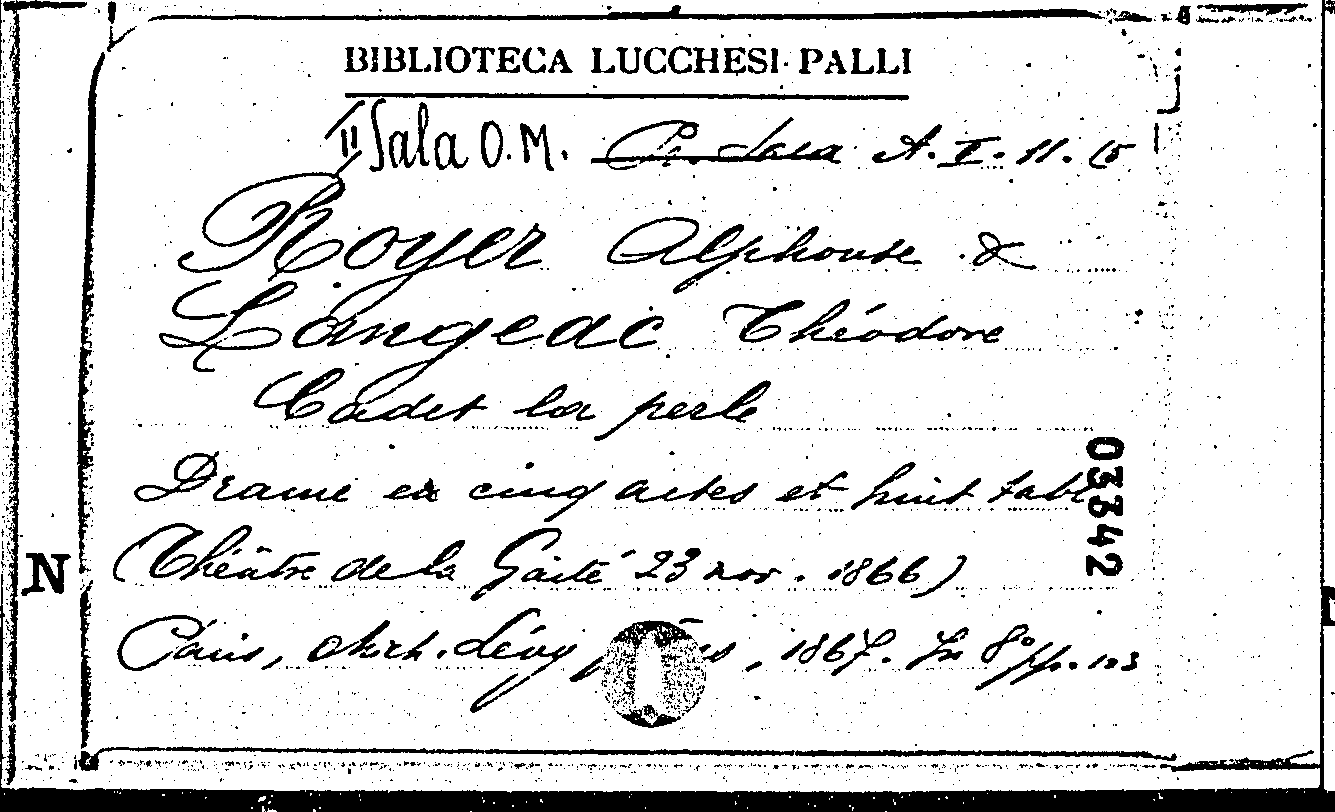 BIBLIOTECA LUCCHESI-PALLI
II Sala O.M. A. I. 11. 15
Royer Alphonse &
Langeac Théodore
Cadet la perle
Drame en cinq actes et huit tabl
03342
(Théâtre de la Gaité 23 nov. 1866)
N
Paris, Mich. Lévy, 1867. In 8° pp. 103